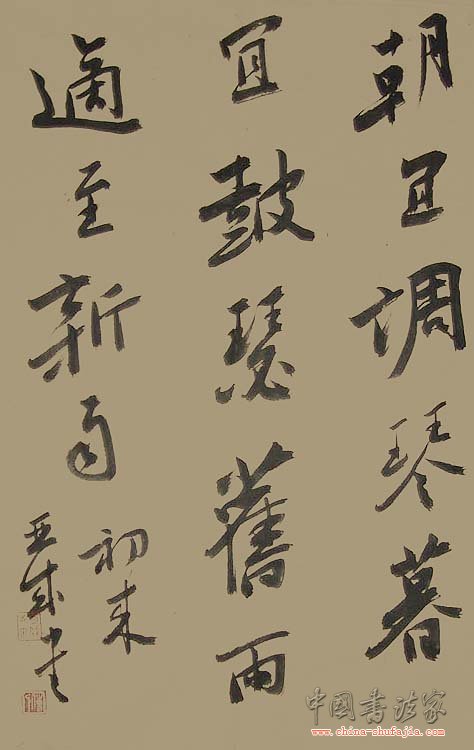 朝宜调琴暮
宜鼓瑟舊雨
適至新雨
初来
亚成书
中国书法家
www.china-shufajia.com